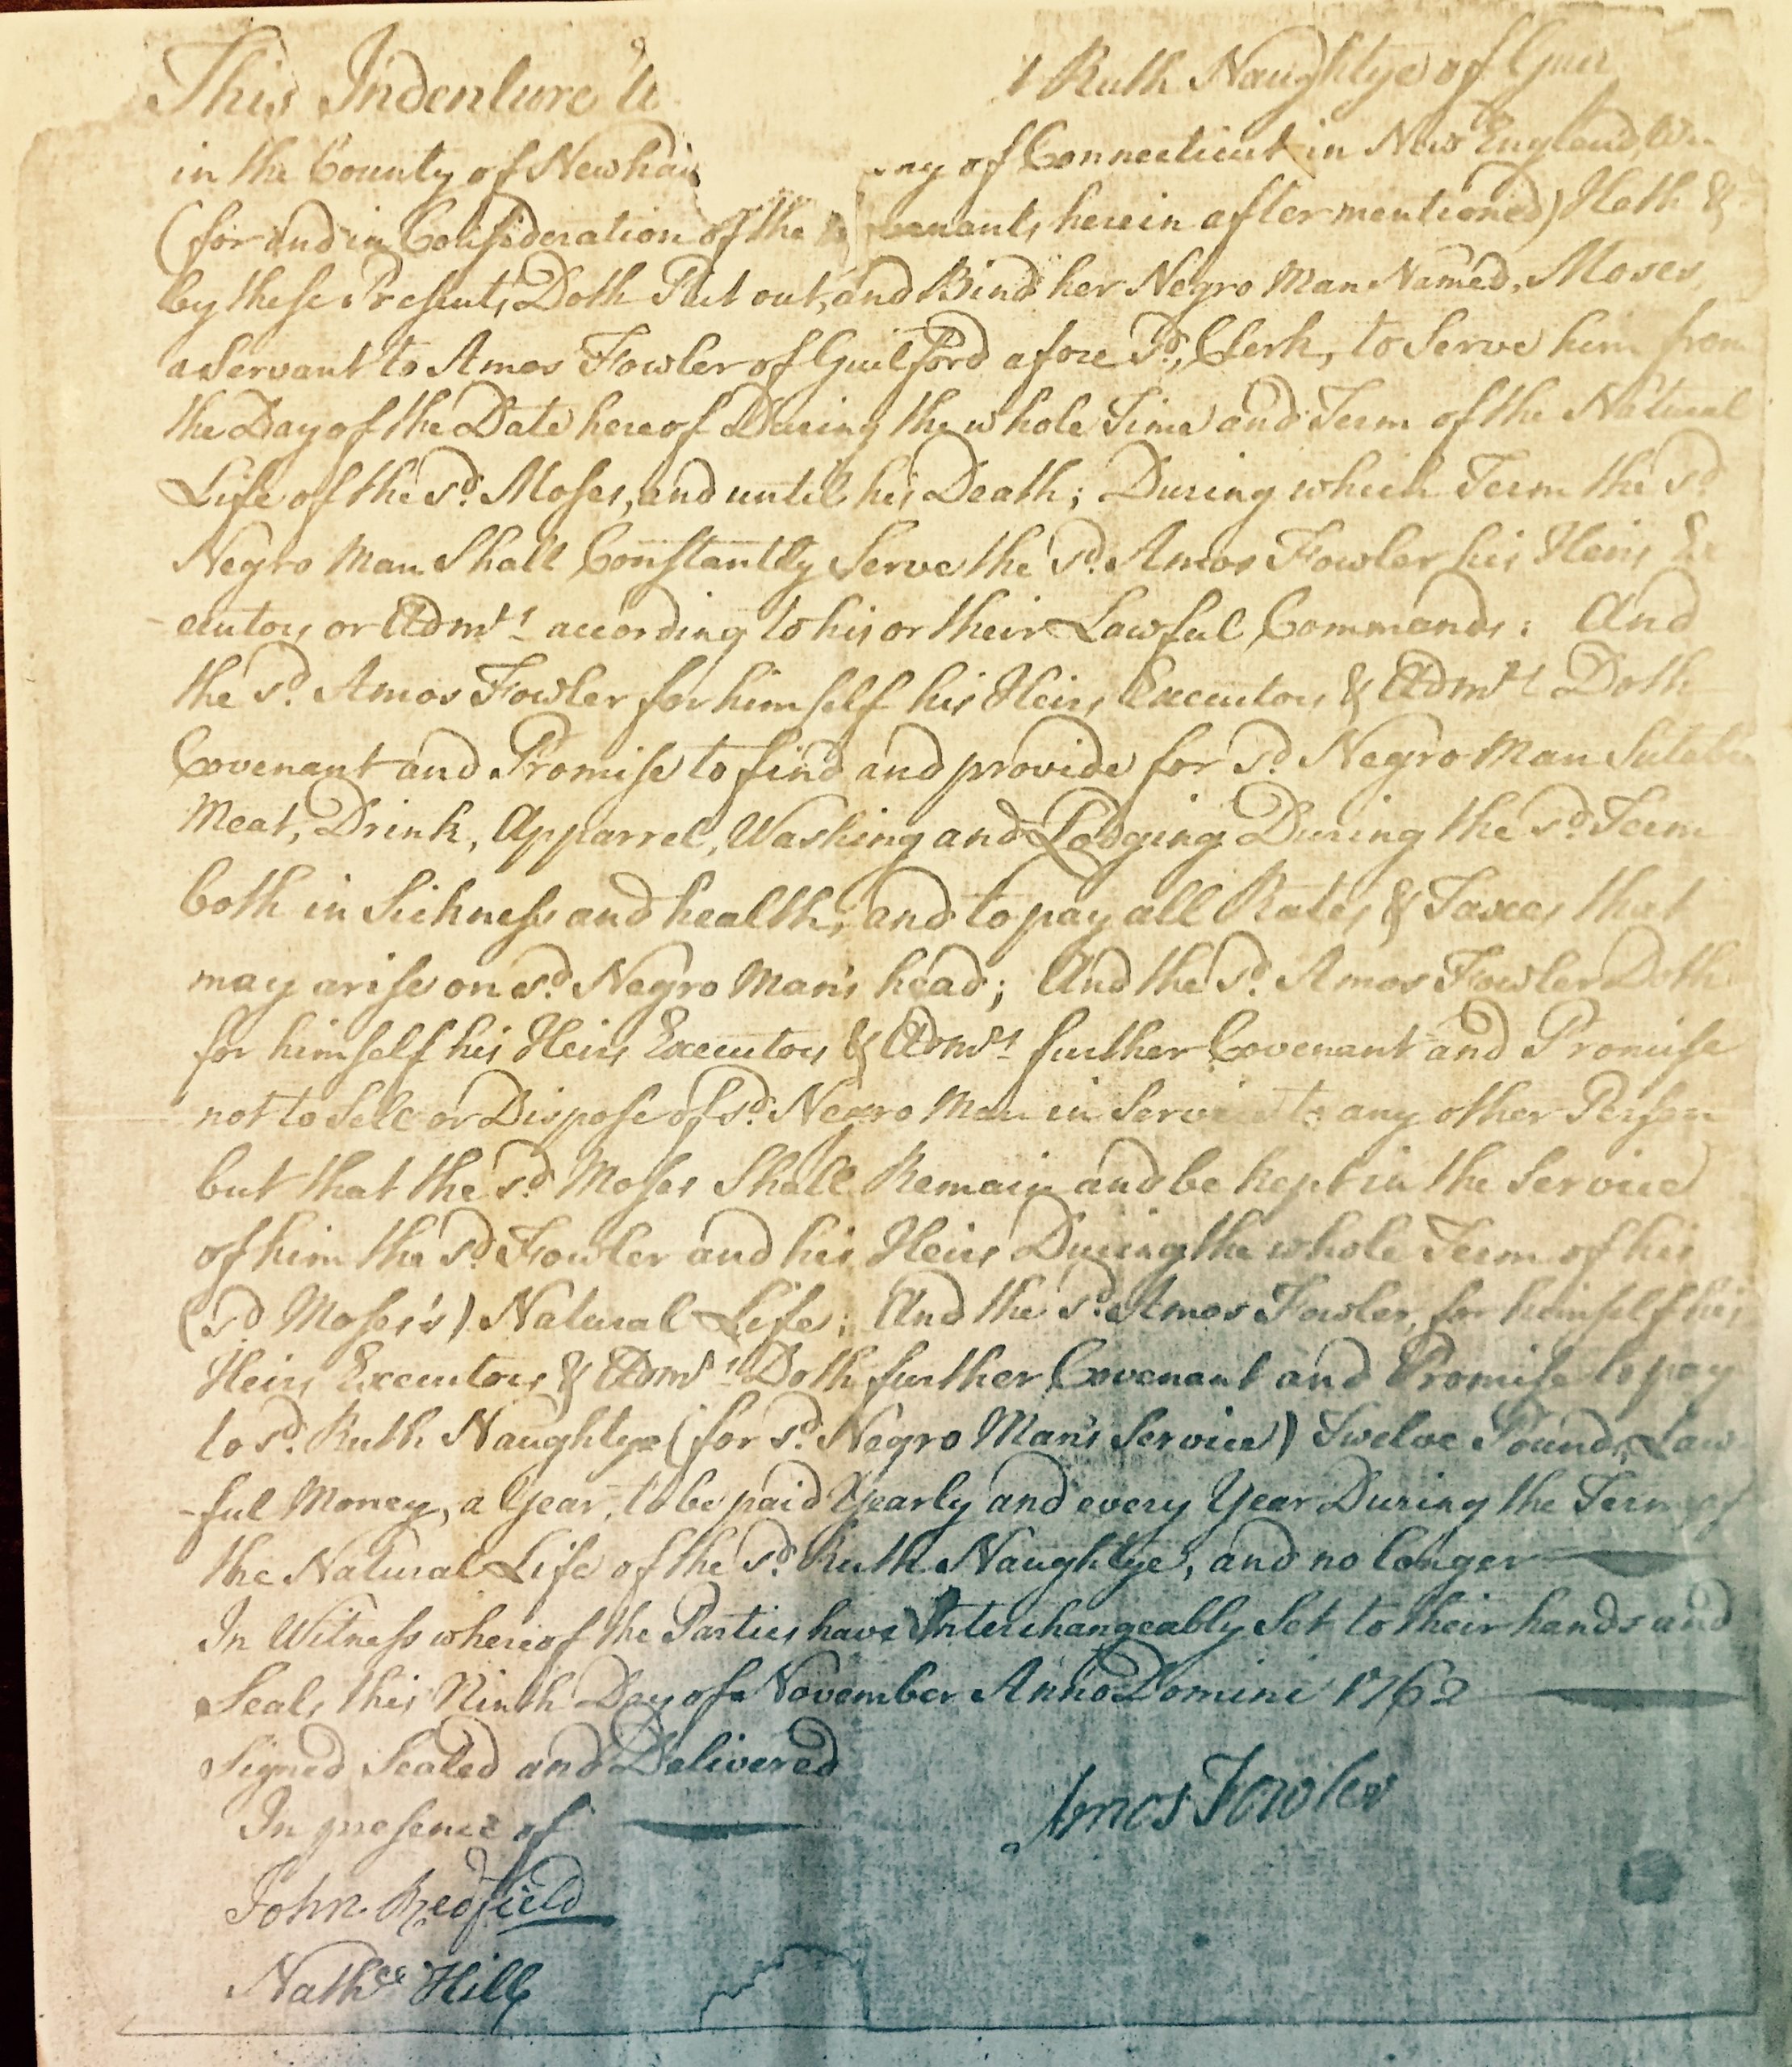 This Indenture
Ruth Naughtye of
in the County of Newhav of Connecticut in New England,
(for and in Consideration of the venants herein after mentioned) Hath &
by these Presents Doth Put out, and Bind her Negro Man Named, Moses
a Servant to Amos Fowler of Guilford afore Sd., Clerk, to Serve him from
the Day of the Date hereof During the whole Time and Term of the Natural
Life of the sd. Moses, and until his Death; During which Term the sd
Negro Man Shall Constantly Serve the sd. Amos Fowler his Heirs Ex
-ecutors or Admrs according to his or their Lawful Commands: And
the sd. Amos Fowler for himself his Heirs Executors & Admrs Doth
Covenant and Promise to find and provide for sd. Negro Man Sutable
Meat, Drink, Apparrel, Washing and Lodging During the sd. Term
both in Sickness and health, and to pay all Rates & Taxes that
may arise on sd. Negro Man's head; And the sd. Amos Fowler Doth
for himself his Heirs Executors & Admrs further Covenant and Promise
not to Sell or Dispose of sd. Negro Man in Service to any other Person
but that the sd Moses Shall Remain and be kept in the Service
of him the sd. Fowler and his Heirs During the whole Term of his
(sd Moses's) Natural Life; And the sd. Amos Fowler, for himself his
Heirs Executors & Admrs Doth further Covenant and Promise to pay
to sd. Ruth Naughtye (for sd. Negro Man's Service) Twelve Pounds Law
-ful Money, a Year, to be paid Yearly and every Year During the Term of
the Natural Life of the sd. Ruth Naughtye, and no longer
In Witness whereof the Parties have Interchangeably Set to their hands and
Seals this Ninth Day of November Anno Domini 1762
Signed Sealed and Delivered
In presence of
Amos Fowler
John Redfield
Nathll Hill